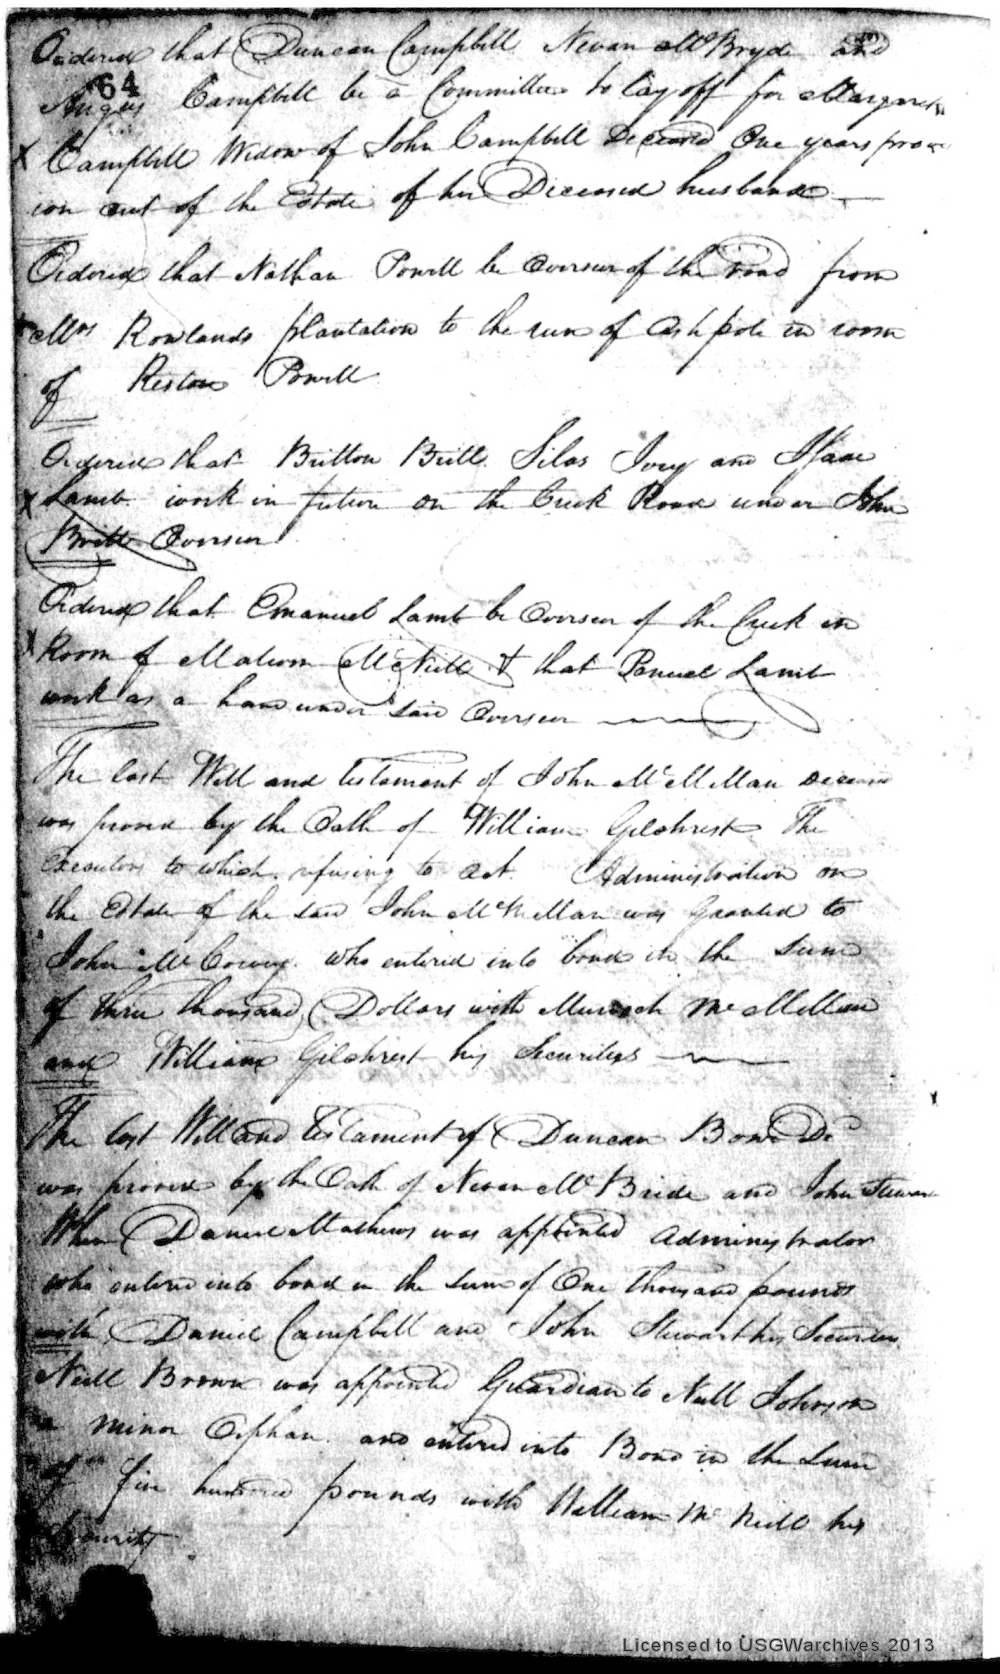 Ordered that Duncan Campbell Nevan McBryde and
64
Angus Campbell be a Committee to lay off for Margaret
X Campbell Widow of John Campbell Deceased One years provis
ion out of the Estate of her Deceased husband
Ordered that Nathan Powell be Overseer of the road from
Mrs Rowlands plantation to the run of Ashpole in room
of Powell
Ordered that Britton Britt Silas Ivey and Isaac
X Lamb work in future on the Creek Road under John
Britt Overseer
Ordered that Emanuel Lamb be Overseer of the Creek in
X Room of Malcom McNeill & that Penuel Lamb
work as a hand under said Overseer
The last Will and testament of John McMillan Deceased
was proved by the Oath of William Gilchrist The
Executors to which refusing to act. Administration on
the Estate of the said John McMillan was Granted to
John Mc who entered into bond in the Sum
of three thousand Dollars with Murdoch McMillan
and William Gilchrist his Securities
The last Will and testament of Duncan Decd
was proved by the Oath of Neven McBride and John Stewart
When Daniel Mathews was appointed administrator
who entered into bond in the sum of One thousand pounds
with Daniel Campbell and John Stewart his Securities
Neill Brown was appointed Guardian to Neill Johnson
a minor Orphan and entered into Bond in the Sum
of five hundred pounds with William McNeill his
Security
Licensed to USGWarchives 2013